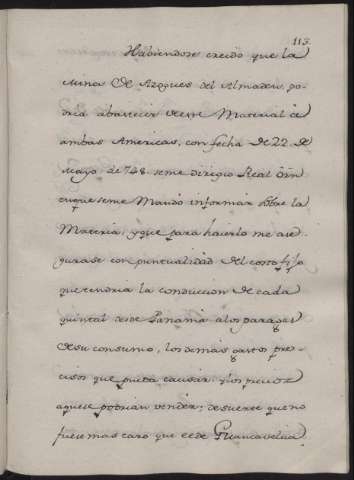 113.
Habiendose creido que la
Mina de Azogues del Almaden, po-
dria abastecer de este Material à
ambas Americas, con fecha de 22 de
Mayo de 748. seme dirigio Real Orn̄
en que seme Mandó informar sobre la
Materia, y que para hacerlo me ase-
gurase con puntualidad del costo fijo
que tendria la conduccion de cada
quintal desde Panamá a los parages
de su consumo, los demas gastos pre-
cisos que pueda causar y los precios
aque se podrian vender; de suerte que no
fuese mas caro que el de Guancavelica